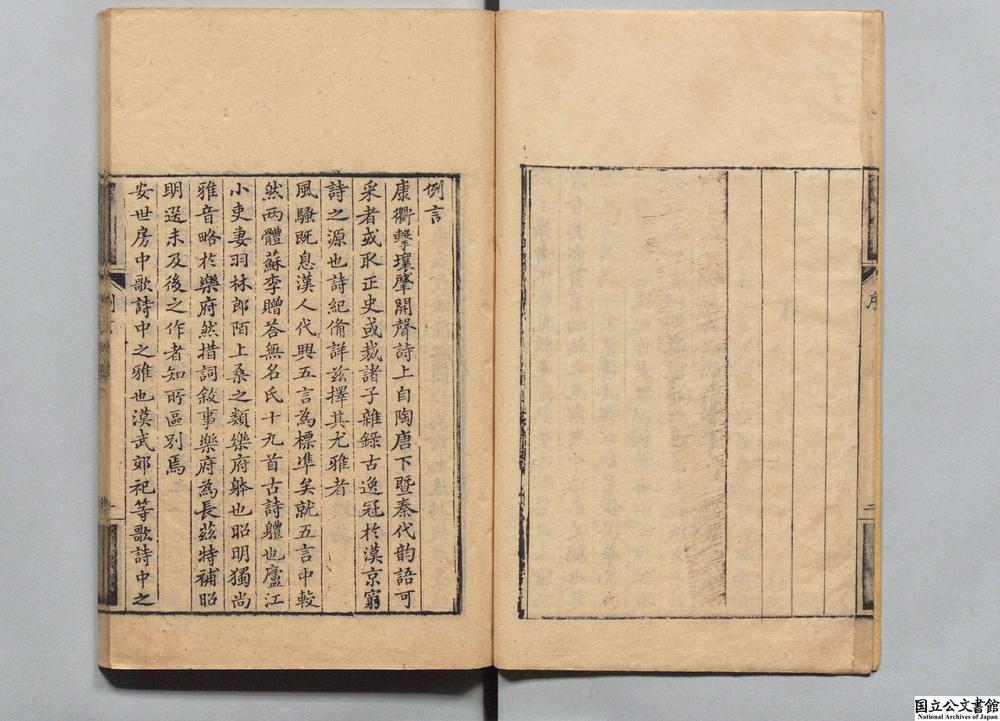 序
二
例言
康衢擊壤肇開聲詩上自陶唐下暨秦代韵語可
采者或取正史或裁諸子雜錄古逸冠於漢京窮
詩之源也詩紀俻詳兹擇其尤雅者
風騷既息漢人代興五言為標準矣就五言中較
然兩體蘇李贈荅無名氏十九首古詩軆也廬江
小吏妻羽林郎陌上桑之類樂府躰也昭明獨尚
雅音略於樂府然措詞敘事樂府為長兹特補昭
明選未及後之作者知所區别焉
安世房中歌詩中之雅也漢武郊祀等歌詩中之
国立公文書館
National Archives of Japan